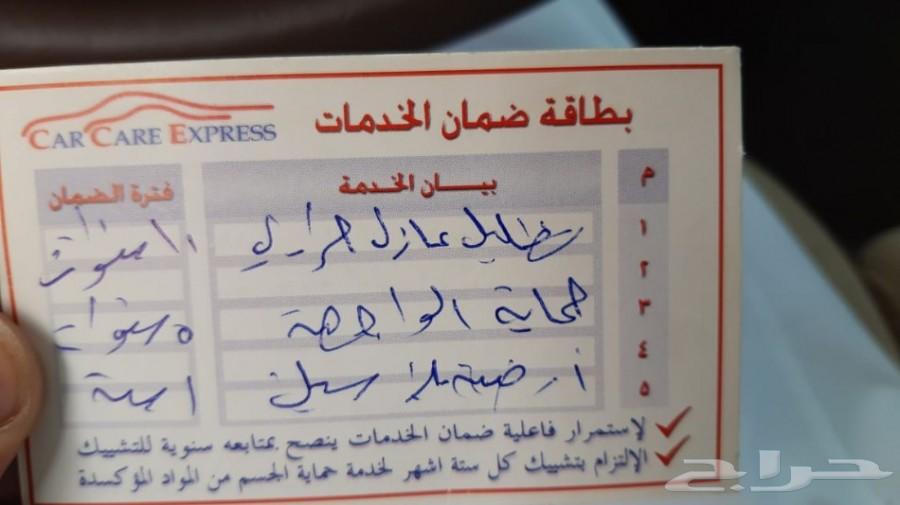 CAR CARE EXPRESS
بطاقة ضمان الخدمات
م بيـــان الخدمة فترة الضمان
١ تظليل عازل حراري ١٠ سنوات
٢
٣ حماية الواجهة ٥ سنوات
٤
٥ أرضية ١ سنة
لإستمرار فاعلية ضمان الخدمات ينصح بمتابعه سنوية للتشييك
الإلتزام بتشييك كل ستة اشهر لخدمة حماية الجسم من المواد المؤكسدة
حراج